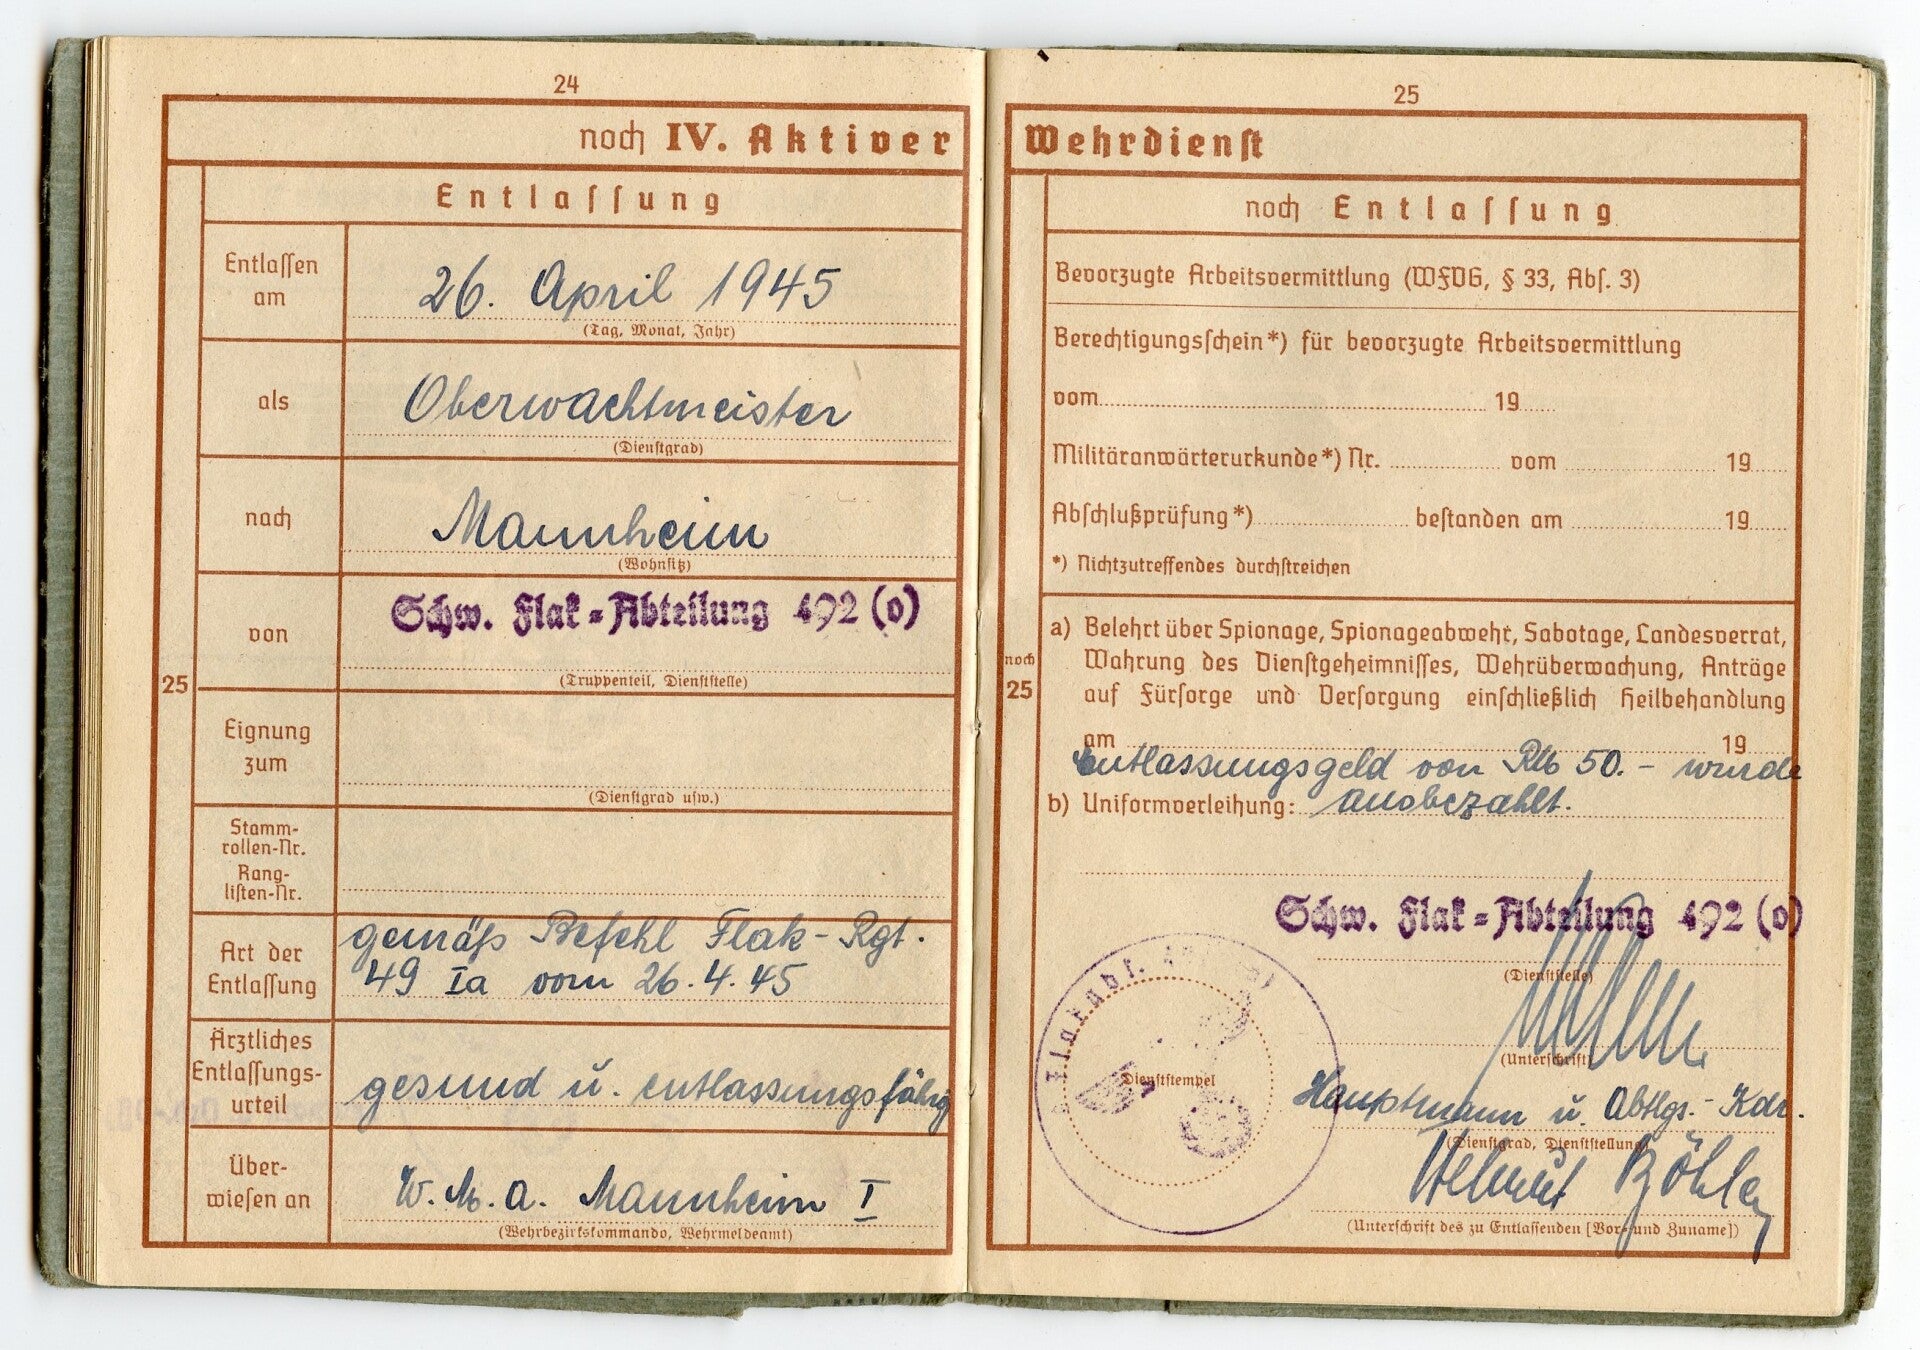 24
noch IV. Aktiver
Entlassung
Entlassen
am
26. April 1945
(Tag, Monat, Jahr)
als
Oberwachtmeister
(Dienstgrad)
nach
Mannheim
(Wohnsitz)
von
Schw. Flak-Abteilung 492 (o)
(Truppenteil, Dienststelle)
25
Eignung
zum
(Dienstgrad usw.)
Stamm-
rollen-Nr.
Rang-
listen-Nr.
Art der
Entlassung
gemäß Befehl Flak-Rgt.
49 Ia vom 26.4.45
Ärztliches
Entlassungs-
urteil
gesund u. entlassungsfähig
Über-
wiesen an
W.M.A. Mannheim I
(Wehrbezirkskommando, Wehrmeldeamt)
25
Wehrdienst
noch Entlassung
Bevorzugte Arbeitsvermittlung (WFVG, § 33, Abs. 3)
Berechtigungsschein*) für bevorzugte Arbeitsvermittlung
vom 19
Militäranwärterurkunde*) Nr. vom 19
Abschlußprüfung*) bestanden am 19
*) Nichtzutreffendes durchstreichen
noch
25
a) Belehrt über Spionage, Spionageabwehr, Sabotage, Landesverrat,
Wahrung des Dienstgeheimnisses, Wehrüberwachung, Anträge
auf Fürsorge und Versorgung einschließlich Heilbehandlung
am 19
Entlassungsgeld von RM 50.- wurde
b) Uniformverleihung: ausbezahlt.
Schw. Flak-Abteilung 492 (o)
(Dienststelle)
(Unterschrift)
Dienststempel
Hauptmann u. Abtlgs.-Kdr.
(Dienstgrad, Dienststellung)
Helmut Böhler
(Unterschrift des zu Entlassenden [Vor- und Zuname])